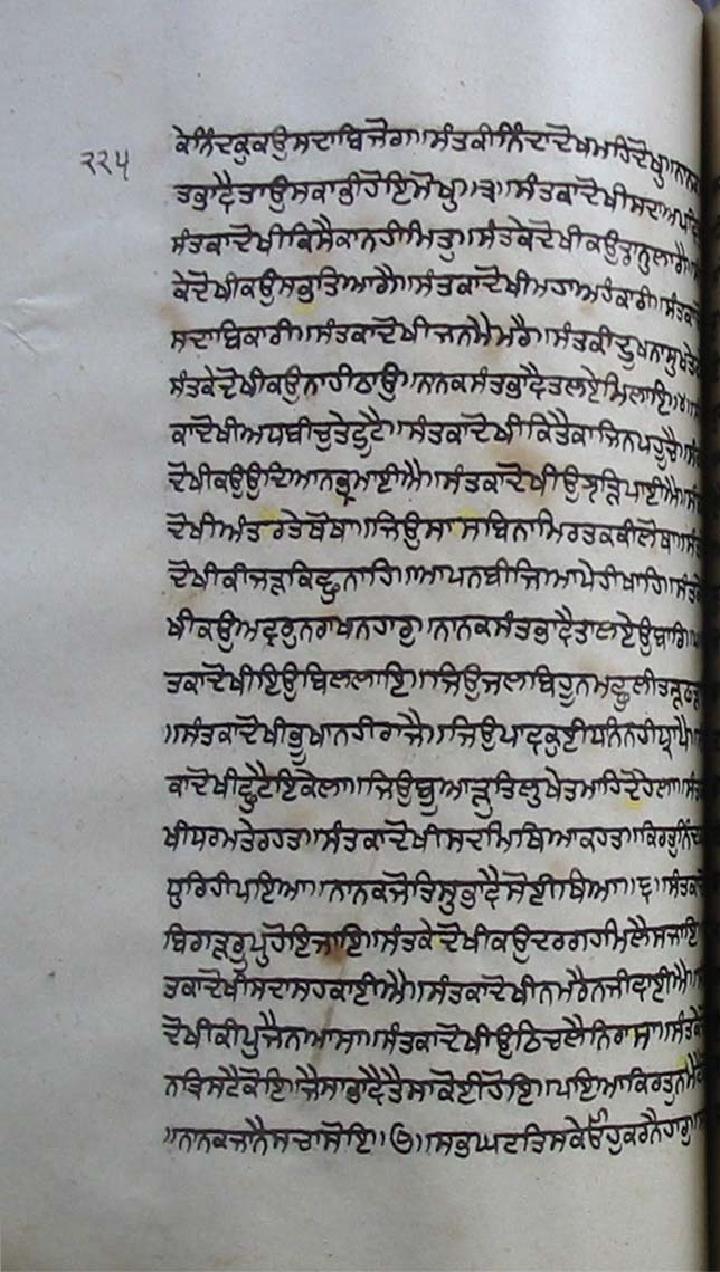 ੨੨੫
ਕੇਨਿੰਦਕੁਕਉਸਦਾਬਿਜੋਗ॥ਸੰਤਕੀਨਿੰਦਾਦੋਖਮਹਿਦੋਖੁ॥ਨਾਨਕ
ਤਭਾਵੈਤਾਉਸਕਾਭੀਹੋਇਮੋਖੁ॥੩॥ਸੰਤਕਾਦੋਖੀਸਦਾਅਪਵਿ
ਸੰਤਕਾਦੋਖੀਕਿਸੈਕਾਨਹੀਮਿਤੁ॥ਸੰਤਕੇਦੋਖੀਕਉਡਾਨੁਲਾਗੈ॥
ਕੇਦੋਖੀਕਉਸਭਤਿਆਗੈ॥ਸੰਤਕਾਦੋਖੀਮਹਾਅਹੰਕਾਰੀ॥ਸੰਤਕਾ
ਸਦਾਬਿਕਾਰੀ॥ਸੰਤਕਾਦੋਖੀਜਨਮੈਮਰੈ॥ਸੰਤਕੀਦੂਖਨਾਸੁਖਤੇ
ਸੰਤਕੇਦੋਖੀਕਉਨਾਹੀਠਾਉ॥ਨਾਨਕਸੰਤਭਾਵੈਤਲਏਮਿਲਾਇ॥੪॥
ਕਾਦੋਖੀਅਧਬੀਚੁਤੇਟੂਟੈ॥ਸੰਤਕਾਦੋਖੀਕਿਤੈਕਾਜਿਨਪਹੂਚੈ॥ਸੰ
ਦੋਖੀਕਉਉਦਿਆਨਭ੍ਰਮਾਈਐ॥ਸੰਤਕਾਦੋਖੀਉਝੜਿਪਾਈਐ॥ਸੰ
ਦੋਖੀਅੰਤਰਤੇਥੋਥਾ॥ਜਿਉਸਾਸਬਿਨਾਮਿਰਤਕਕੀਲੋਥਾ॥ਸੰਤ
ਦੋਖੀਕੀਜੜਕਿਛੁਨਾਹਿ॥ਆਪਨਬੀਜਿਆਪੇਹੀਖਾਹਿ॥ਸੰਤਕੇ
ਖੀਕਉਅਵਰੁਨਰਾਖਨਹਾਰੁ॥ਨਾਨਕਸੰਤਭਾਵੈਤਾਲਏਉਬਾਰਿ॥
ਤਕਾਦੋਖੀਇਉਬਿਲਲਾਇ॥ਜਿਉਜਲਬਿਹੂਨਮਛੁਲੀਤੜਫੜ
॥ਸੰਤਕਾਦੋਖੀਭੂਖਾਨਹੀਰਾਜੈ॥ਜਿਉਪਾਵਕੁਈਧਨਿਨਹੀਧ੍ਰਾਪੈ॥
ਕਾਦੋਖੀਛੁਟੈਇਕੇਲਾ॥ਜਿਉਬੂਆੜੁਤਿਲੁਖੇਤਮਾਹਿਦੋਹੇਲਾ॥ਸੰਤ
ਖੀਧਰਮਤੇਰਹਤ॥ਸੰਤਕਾਦੋਖੀਸਦਮਿਥਿਆਕਹਤ॥ਕਿਰਤੁਨਿੰਦ
ਧੁਰਿਹੀਪਾਇਆ॥ਨਾਨਕਜੋਤਿਸੁਭਾਵੈਸੋਈਥਿਆ॥੬॥ਸੰਤਕਾ
ਬਿਗੜਰੂਪੁਹੋਇਜਾਇ॥ਸੰਤਕੇਦੋਖੀਕਉਦਰਗਹਮਿਲੈਸਜਾਇ
ਤਕਾਦੋਖੀਸਦਾਸਹਕਾਈਐ॥ਸੰਤਕਾਦੋਖੀਨਮਰੈਨਜੀਵਾਈਐ॥
ਦੋਖੀਕੀਪੁਜੈਨਆਸਾ॥ਸੰਤਕਾਦੋਖੀਉਠਿਚਲੈਨਿਰਾਸਾ॥ਸੰਤਕੇ
ਨਤ੍ਰਿਸਟੈਕੋਇ॥ਜੈਸਾਭਾਵੈਤੈਸਾਕੋਈਹੋਇ॥ਪਇਆਕਿਰਤੁਨਮੇ
॥ਨਾਨਕਜਾਨੈਸਚਾਸੋਇ॥੭॥ਸਭਘਟਤਿਸਕੇਓਹੁਕਰਨੈਹਾਰੁ॥